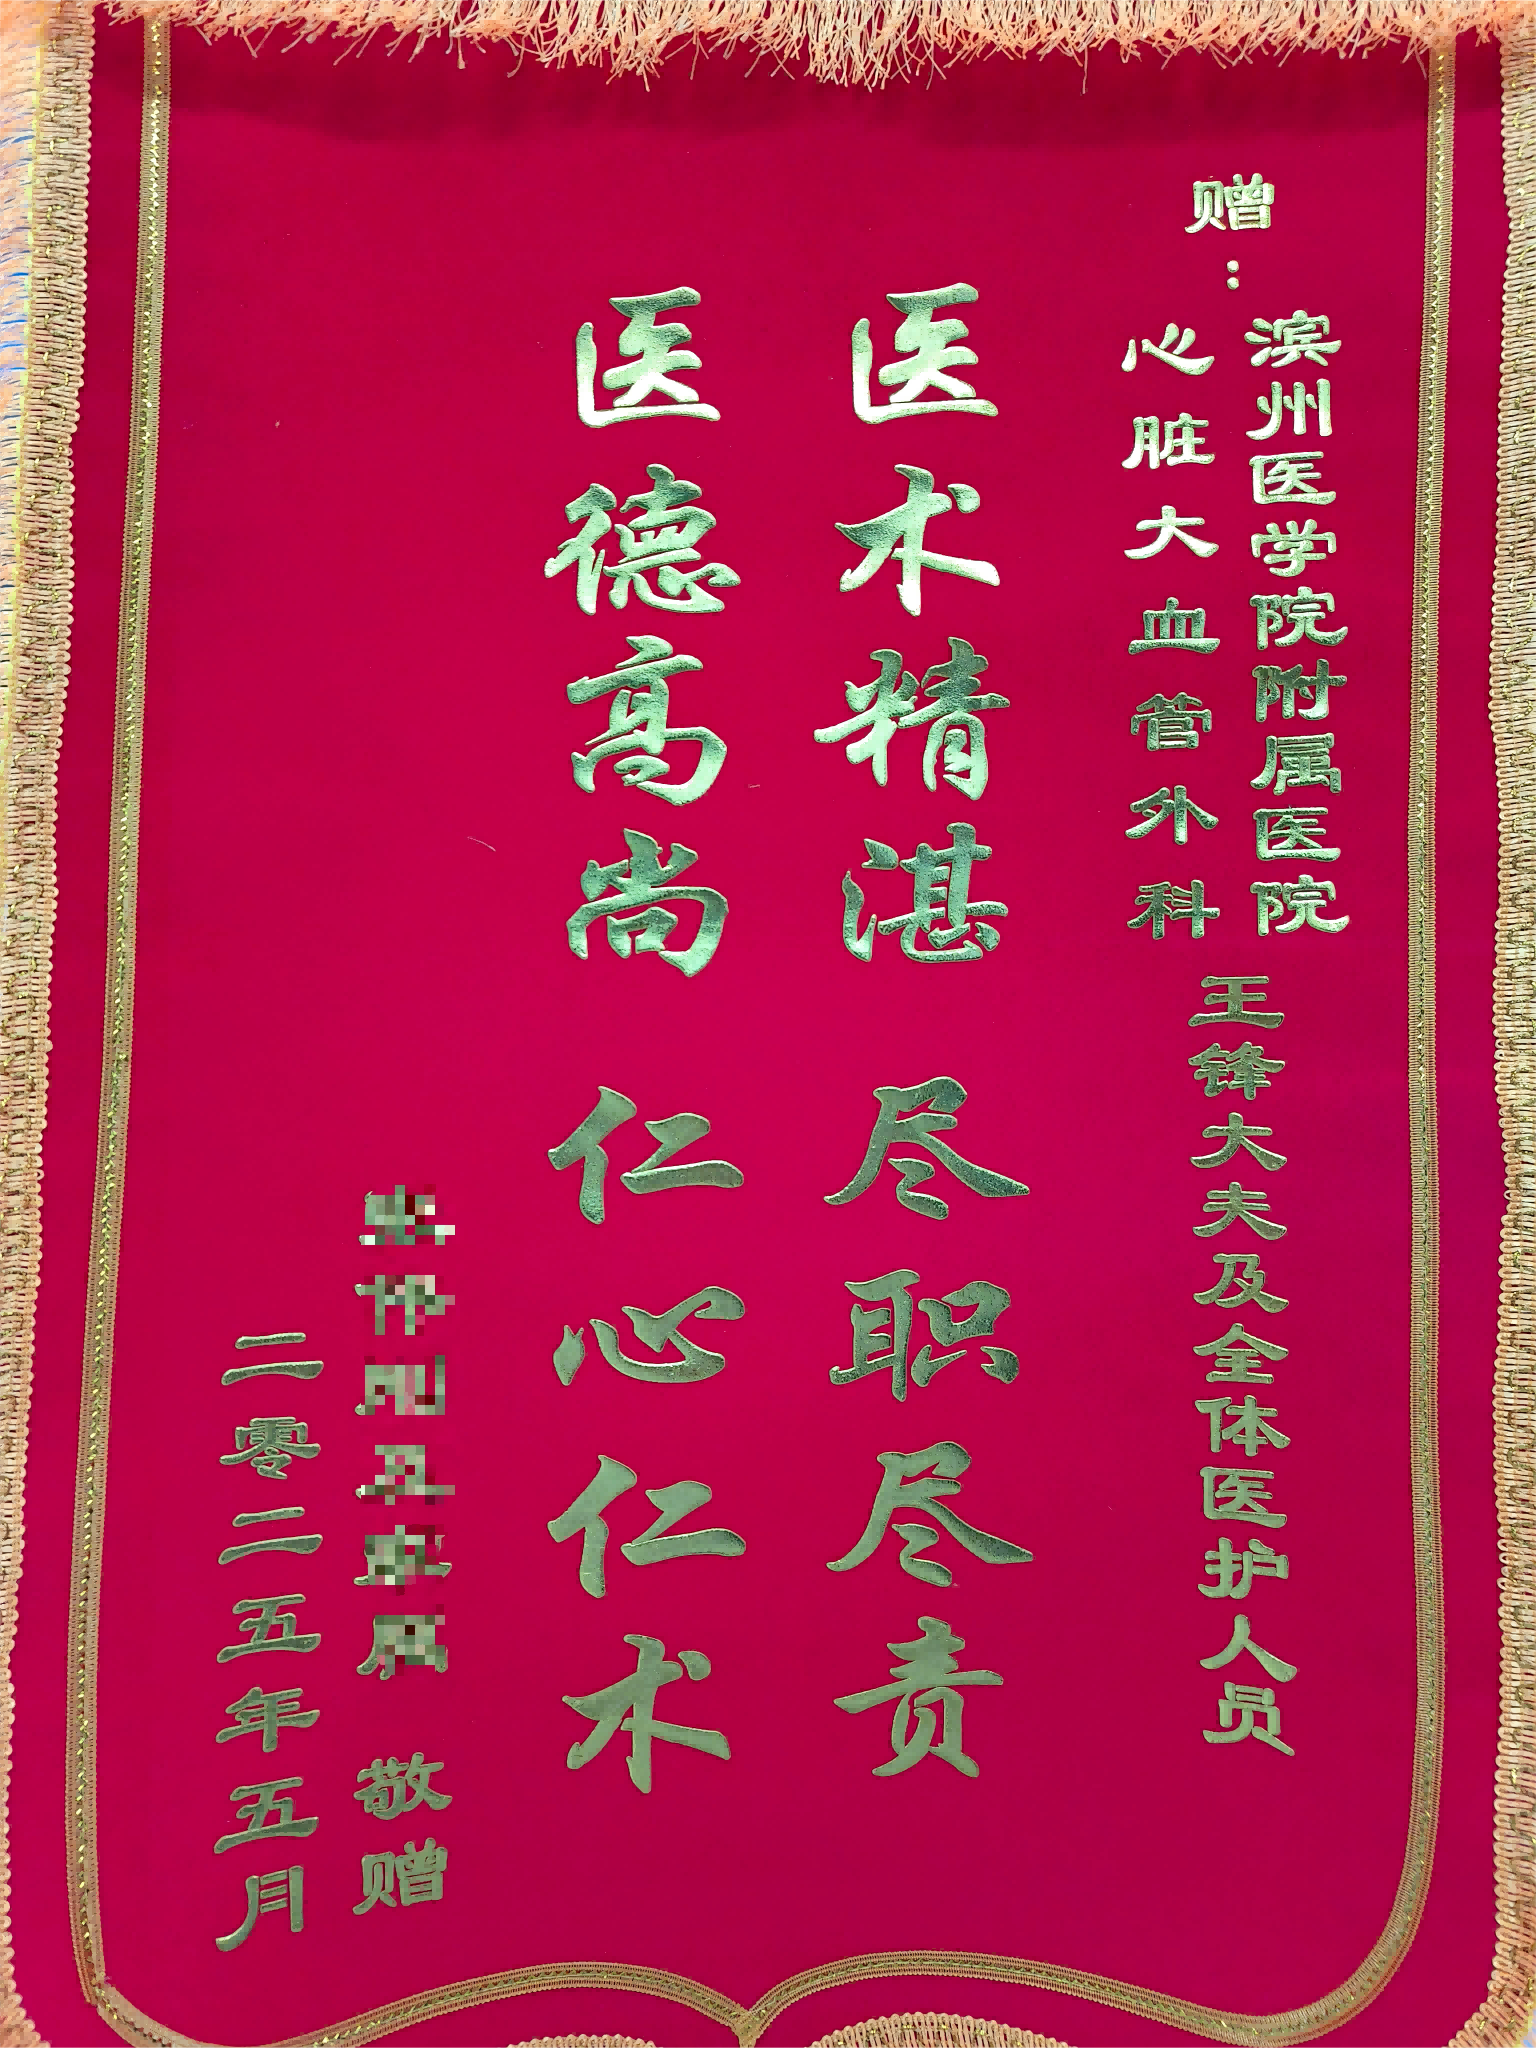 赠：
滨州医学院附属医院
心脏大血管外科
王锋大夫及全体医护人员
医术精湛 尽职尽责
医德高尚 仁心仁术
敬赠
二零二五年五月